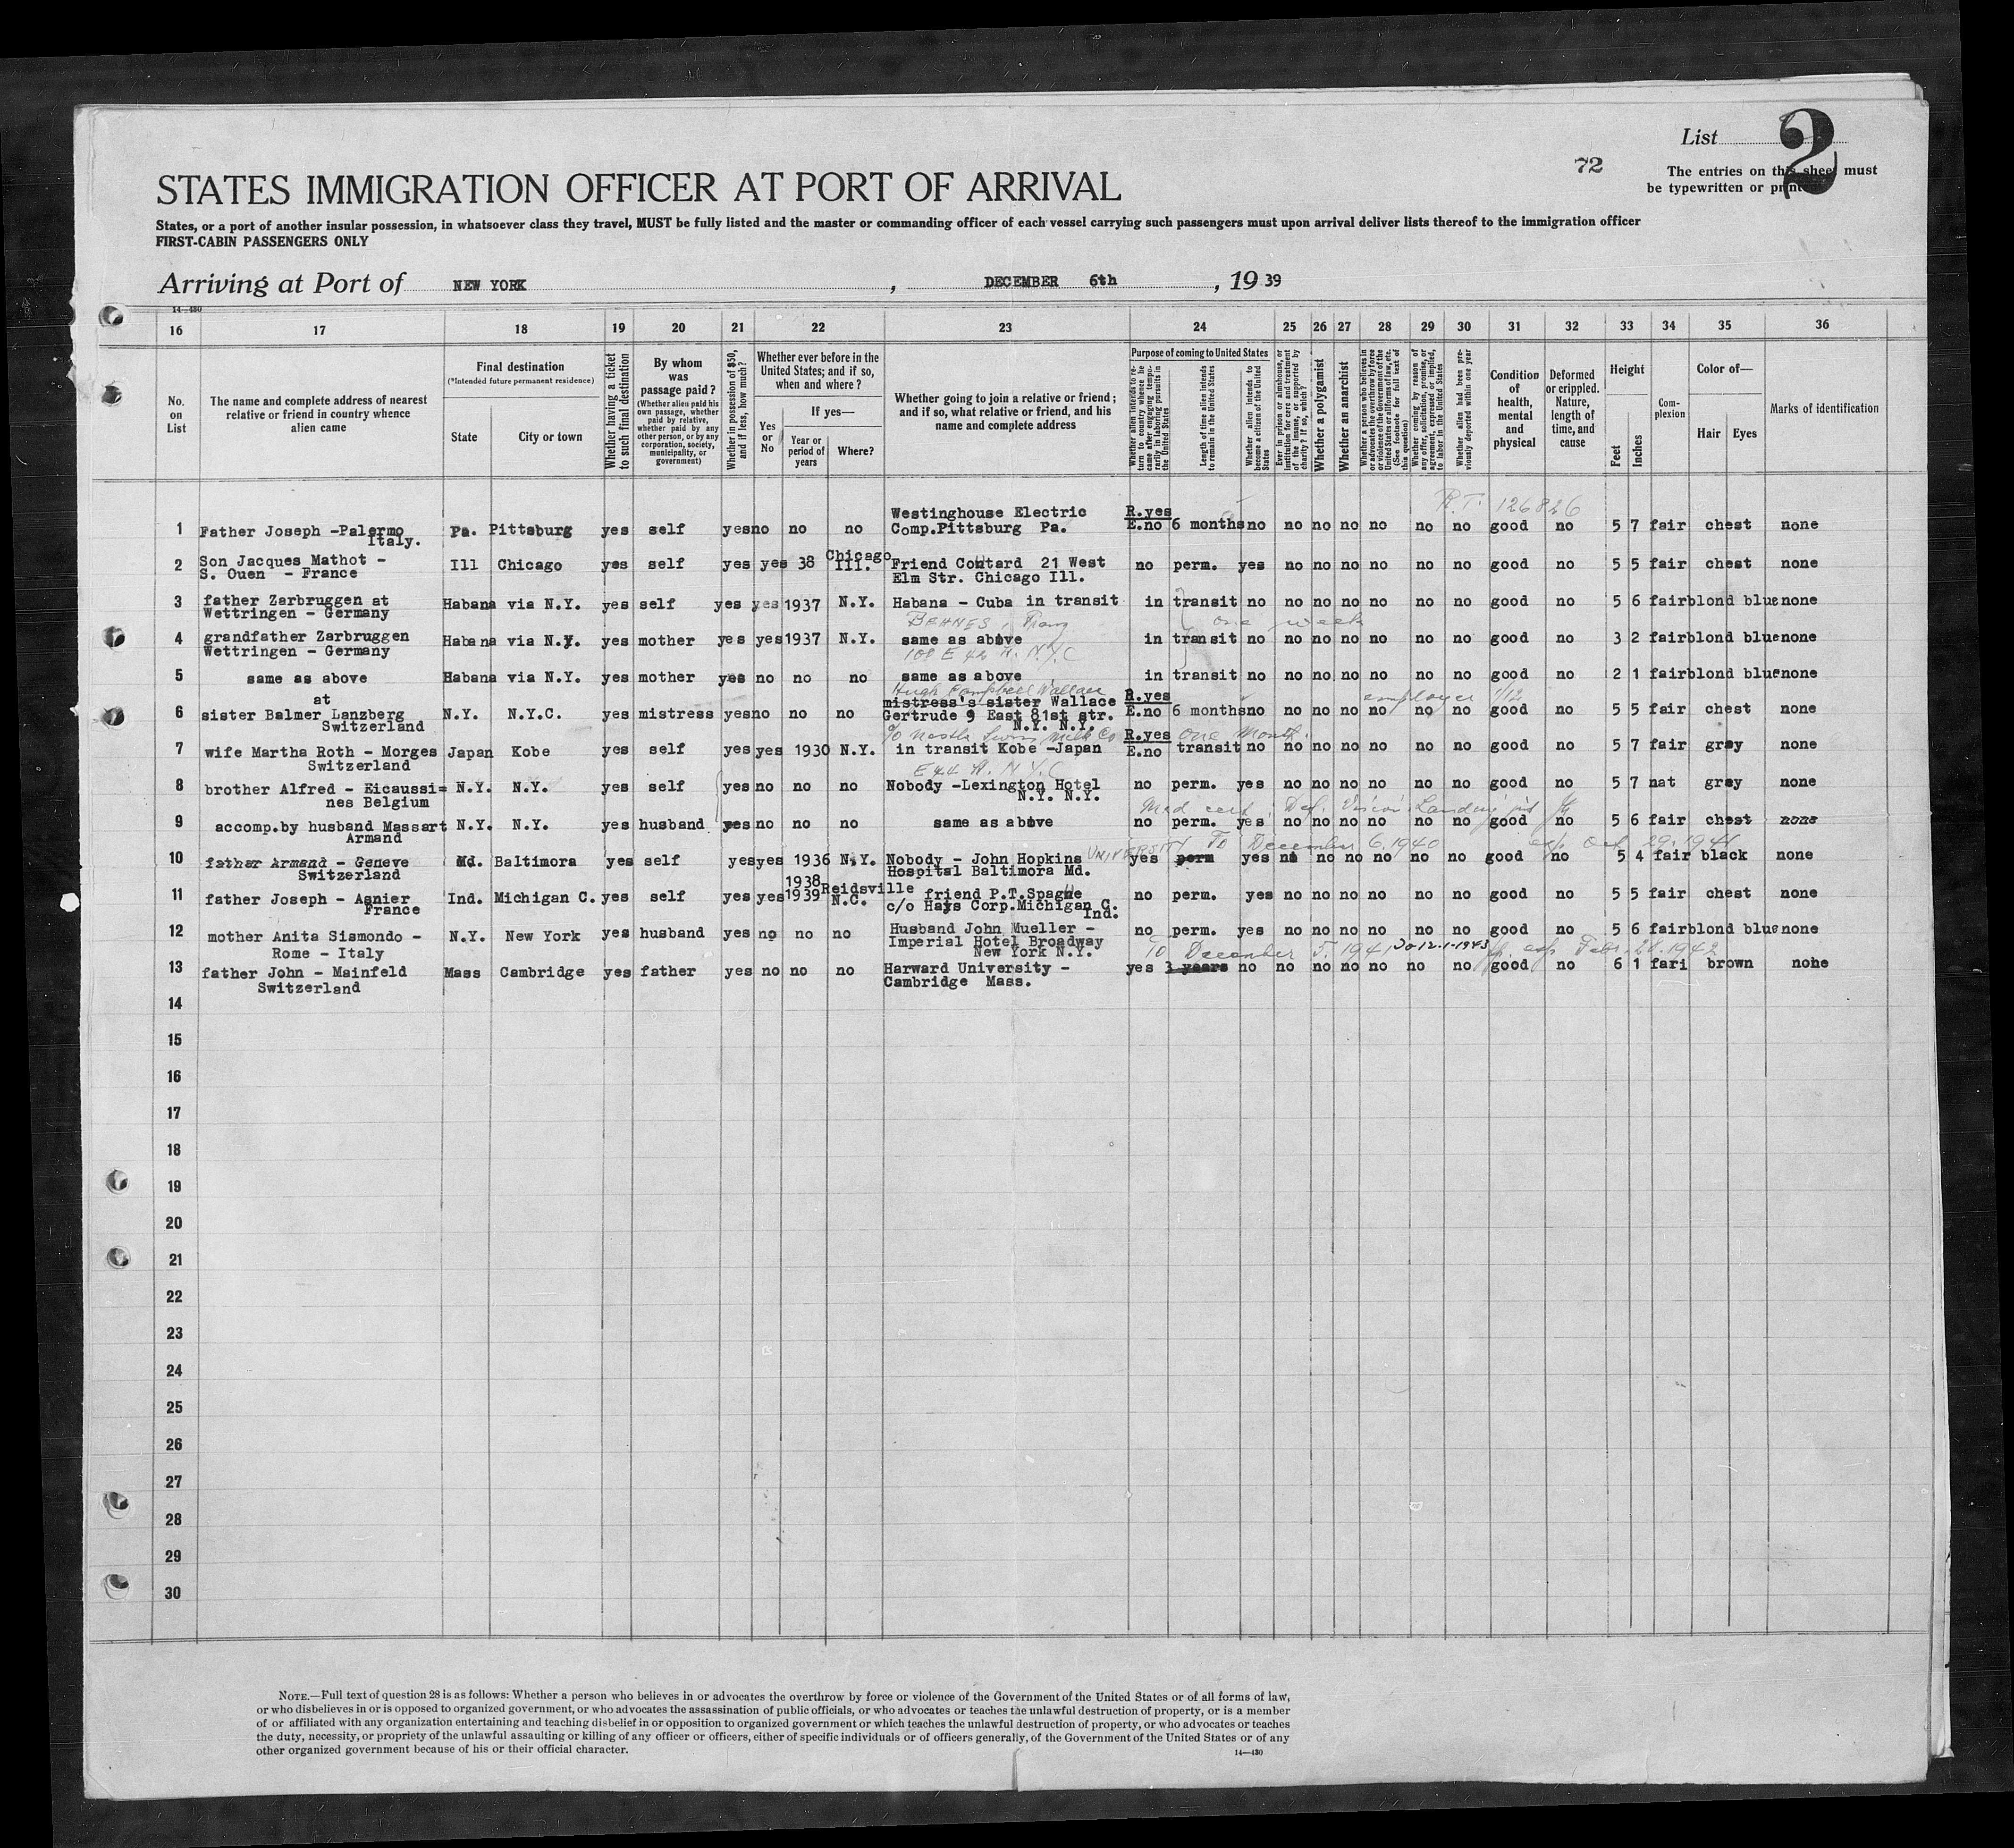 List 2
72
The entries on this sheet must
be typewritten or printed
STATES IMMIGRATION OFFICER AT PORT OF ARRIVAL
States, or a port of another insular possession, in whatsoever class they travel, MUST be fully listed and the master or commanding officer of each vessel carrying such passengers must upon arrival deliver lists thereof to the immigration officer
FIRST-CABIN PASSENGERS ONLY
Arriving at Port of NEW YORK , DECEMBER 6th , 1939
14—430
16 17 18 19 20 21 22 23 24 25 26 27 28 29 30 31 32 33 34 35 36
No. on List
The name and complete address of nearest relative or friend in country whence alien came
Final destination
(*Intended future permanent residence)
State City or town
Whether having a ticket to such final destination
By whom was passage paid?
(Whether alien paid his own passage, whether paid by relative, whether paid by any other person, or by any corporation, society, municipality, or government)
Whether in possession of $50, and if less, how much?
Whether ever before in the United States; and if so, when and where?
Yes or No
If yes—
Year or period of years
Where?
Whether going to join a relative or friend; and if so, what relative or friend, and his name and complete address
Purpose of coming to United States
Whether alien intends to return to country whence he came after engaging temporarily in laboring pursuits in the United States
Length of time the alien intends to remain in the United States
Whether alien intends to become a citizen of the United States
Ever in prison or almshouse, or institution for care and treatment of the insane, or supported by charity? If so, which?
Whether a polygamist
Whether an anarchist
Whether a person who believes in or advocates the overthrow by force or violence of the Government of the United States or all forms of law, etc. (See footnote for full text of this question)
Whether coming by reason of any offer, solicitation, promise, or agreement, expressed or implied, to labor in the United States
Whether alien had been previously deported within one year
Condition of health, mental and physical
Deformed or crippled. Nature, length of time, and cause
Height
Feet Inches
Complexion
Color of—
Hair Eyes
Marks of identification
R.T. 126826
Westinghouse Electric R.yes
1 Father Joseph -Palermo Pa. Pittsburg yes self yes no no no Comp.Pittsburg Pa. E.no 6 months no no no no no no no good no 5 7 fair chest none
Italy.
Chicago
2 Son Jacques Mathot - Ill Chicago yes self yes yes 38 Ill. Friend Coutard 21 West no perm. yes no no no no no no good no 5 5 fair chest none
S. Ouen - France Elm Str. Chicago Ill.
3 father Zarbruggen at Habana via N.Y. yes self yes yes 1937 N.Y. Habana - Cuba in transit in transit no no no no no no no good no 5 6 fair blond blue none
Wettringen - Germany
one week
4 grandfather Zarbruggen Habana via N.Y. yes mother yes yes 1937 N.Y. same as above in transit no no no no no no no good no 3 2 fair blond blue none
Wettringen - Germany
5 same as above Habana via N.Y. yes mother yes no no no same as above in transit no no no no no no no good no 2 1 fair blond blue none
Hugh Campbell Wallace
at mistress's sister Wallace R.yes employer
6 sister Balmer Lanzberg N.Y. N.Y.C. yes mistress yes no no no Gertrude 9 East 81st str. E.no 6 months no no no no no no no good no 5 5 fair chest none
Switzerland N.Y. N.Y.
c/o Nestle Swiss Milk Co R.yes one month
7 wife Martha Roth - Morges Japan Kobe yes self yes yes 1930 N.Y. in transit Kobe -Japan E.no transit no no no no no no no good no 5 7 fair gray none
Switzerland
E 44 St. N.Y.C
8 brother Alfred - Eicaussi= N.Y. N.Y. yes self yes no no no Nobody -Lexington Hotel no perm. yes no no no no no no good no 5 7 nat gray none
nes Belgium N.Y. N.Y.
Med cert:
9 accomp.by husband Massart N.Y. N.Y. yes husband yes no no no same as above no perm. yes no no no no no no good no 5 6 fair chest none
Armand
To December 6, 1940
10 father Armand - Geneve Md. Baltimora yes self yes yes 1936 N.Y. Nobody - John Hopkins UNIVERSITY yes perm yes no no no no no no good no 5 4 fair black none
Switzerland Hospital Baltimora Md.
1938 Reidsville
11 father Joseph - Asnier Ind. Michigan C. yes self yes yes 1939 N.C. friend P.T.Spague no perm. yes no no no no no no good no 5 5 fair chest none
France c/o Hays Corp.Michigan C.
Ind.
12 mother Anita Sismondo - N.Y. New York yes husband yes no no no Husband John Mueller - no perm. yes no no no no no no good no 5 6 fair blond blue none
Rome - Italy Imperial Hotel Broadway
New York N.Y.
To December 5, 1941 To 12-1-1943 exp. Feb. 28. 1942
13 father John - Mainfeld Mass Cambridge yes father yes no no no Harward University - yes 3 years no no no no no no no good no 6 1 fari brown none
Switzerland Cambridge Mass.
14
15
16
17
18
19
20
21
22
23
24
25
26
27
28
29
30
NOTE.—Full text of question 28 is as follows: Whether a person who believes in or advocates the overthrow by force or violence of the Government of the United States or of all forms of law,
or who disbelieves in or is opposed to organized government, or who advocates the assassination of public officials, or who advocates or teaches the unlawful destruction of property, or is a member
of or affiliated with any organization entertaining and teaching disbelief in or opposition to organized government or which teaches the unlawful destruction of property, or who advocates or teaches
the duty, necessity, or propriety of the unlawful assaulting or killing of any officer or officers, either of specific individuals or of officers generally, of the Government of the United States or of any
other organized government because of his or their official character.
14—430